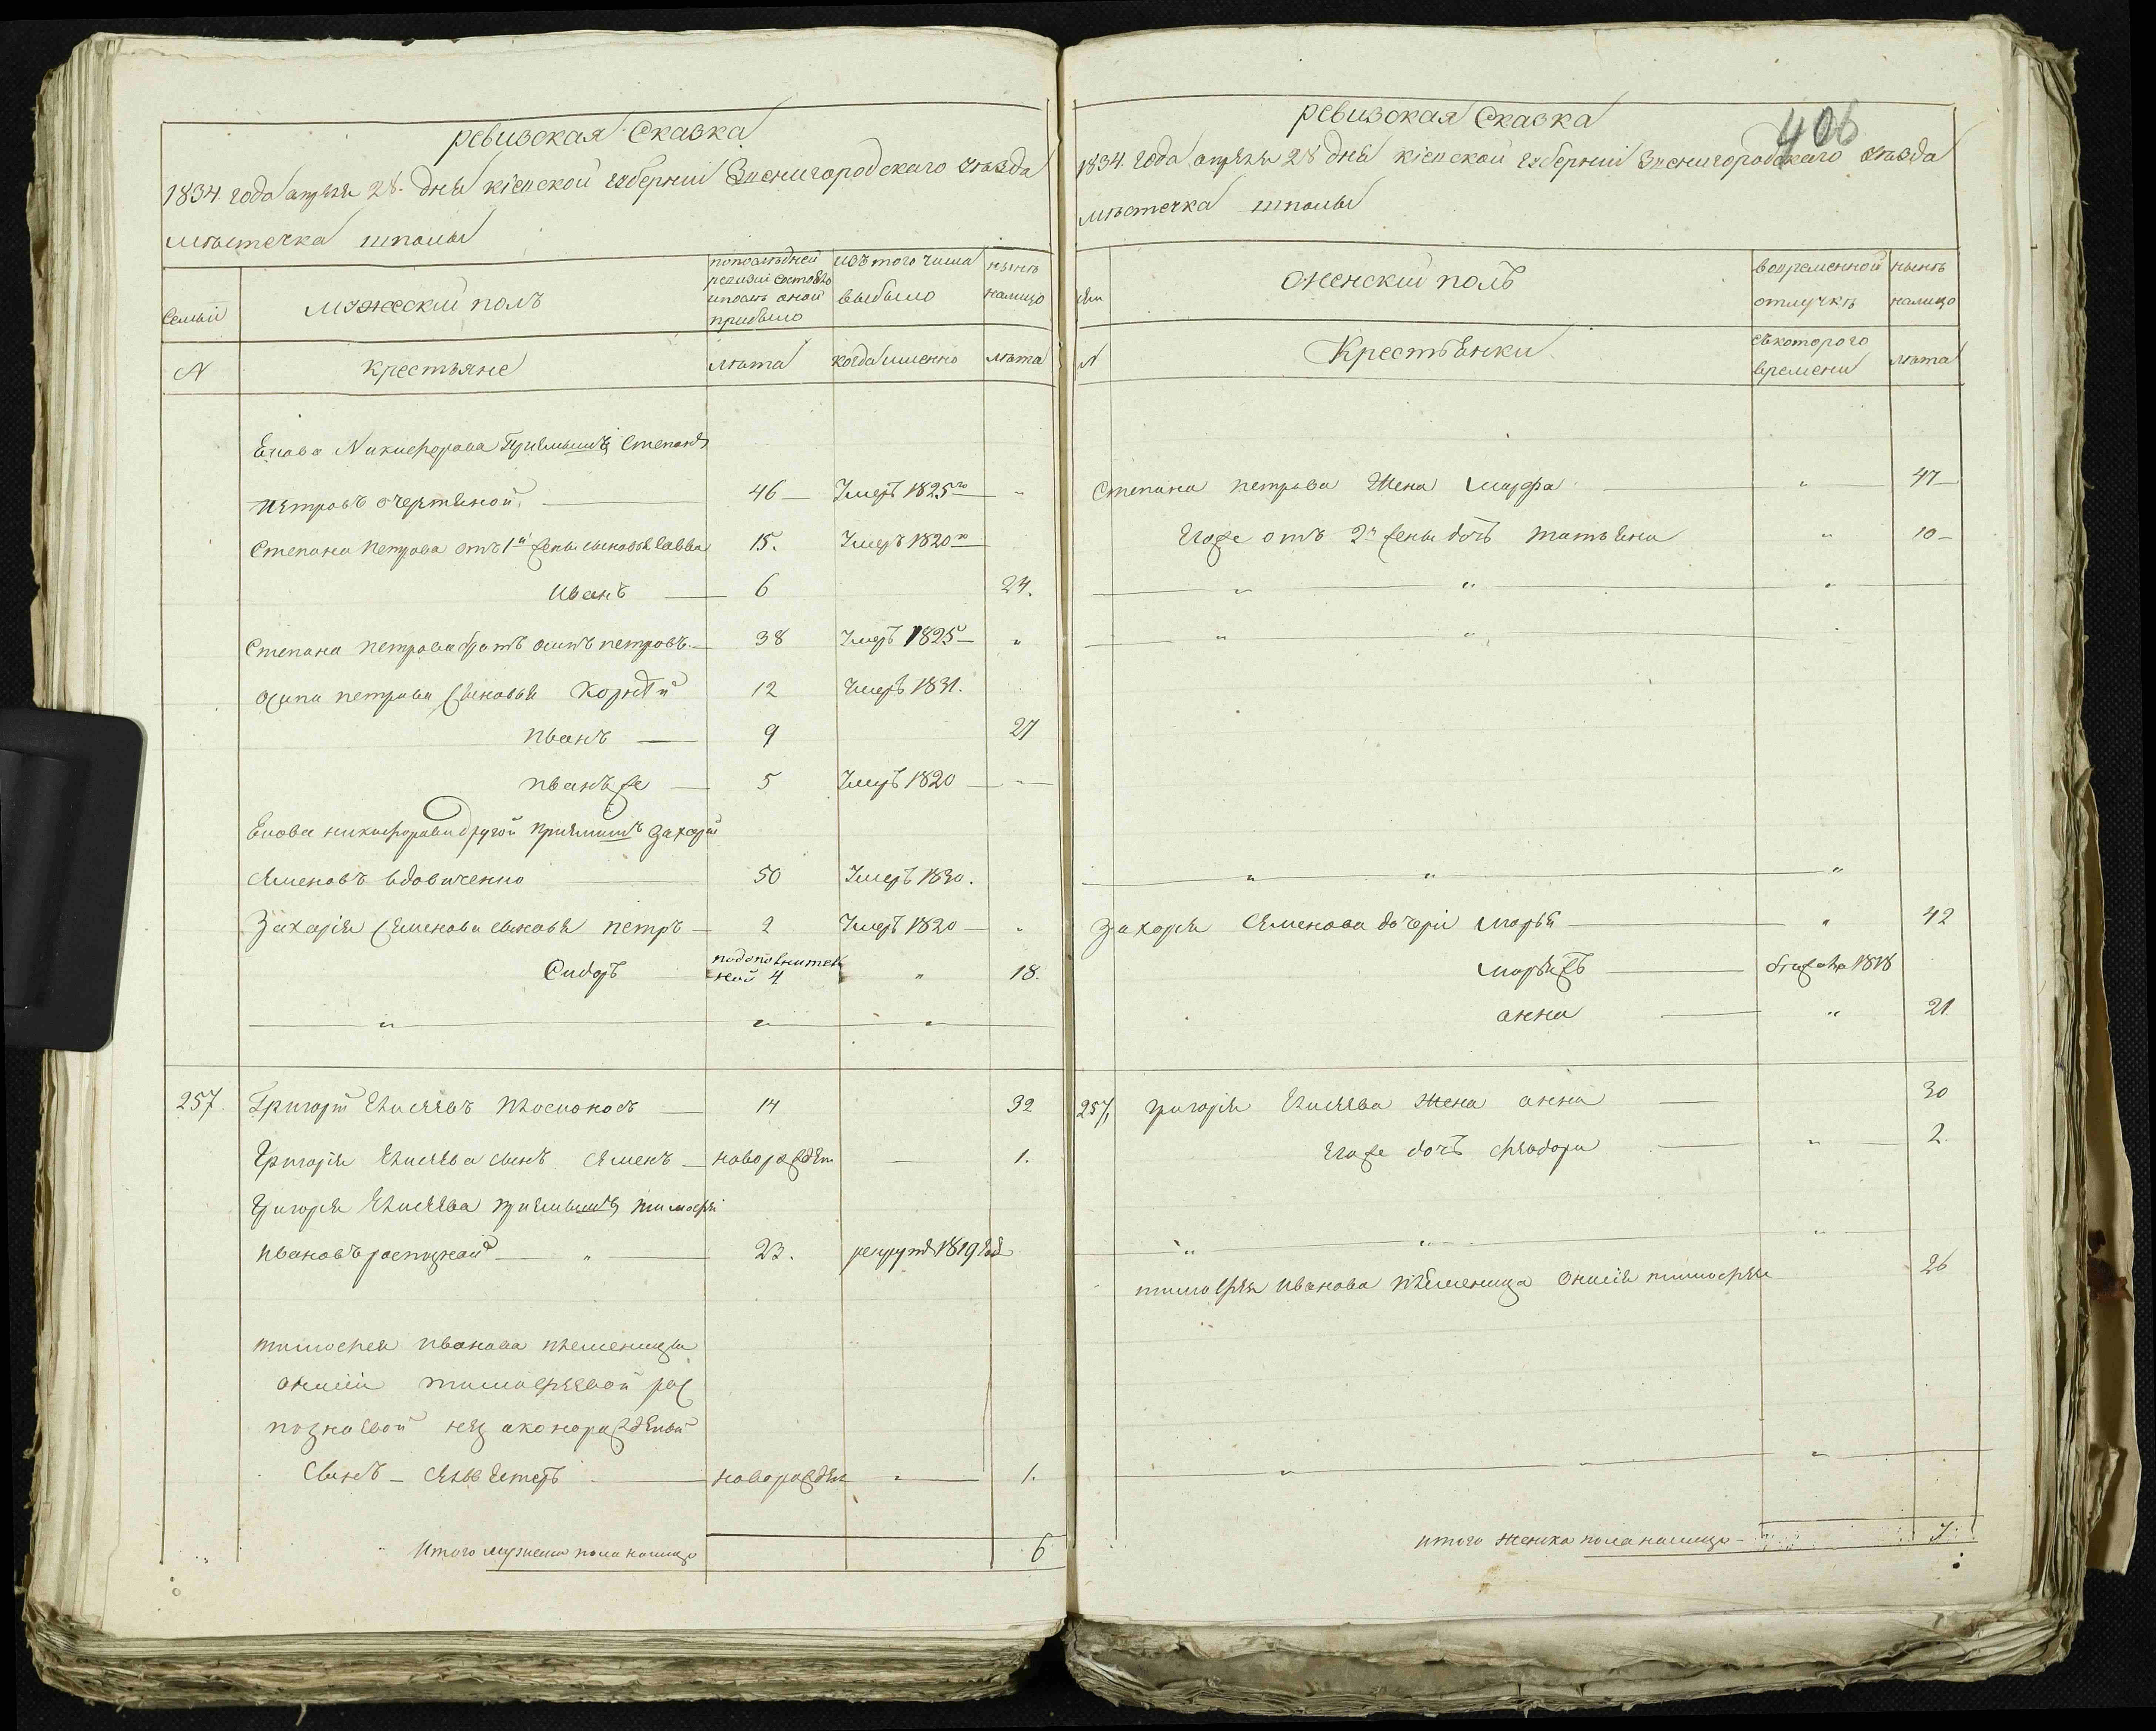 ревизская Сказка
1834. года апреля 28. дня кіевской губерніи Звенигородскаго уѣзда
мѣстечка шполы
Семьи
мужескій полъ
по последней ревизіи состояло и после оной прибыло
изъ того числа выбыло
нынѣ налицо
N
крестьяне
лѣта
когда именно
лѣта
Никифорова Приемышъ Степанъ
Петровъ — 46 — Умеръ 1825го „
Степана Петрова отъ 1й жены сыновья Савва 15. Умеръ 1820го
Иванъ — 6 24.
Степана Петрова братъ осипъ петровъ — 38 Умеръ 1825 — „
осипа петрова сыновья Корнѣй 12 Умеръ 1831.
иванъ — 9 27
иванъ же — 5 Умеръ 1820 — „
никифорова другой приемышъ Захарій
Семеновъ вдовиченко — 50 Умеръ 1830.
Захарія Семенова сыновья петръ — 2 Умеръ 1820 — „
Сидоръ — по дополнительной 4 „ 18.
„ „ „
257. Григорій Елисеевъ — 14 32
Григорія Елисеева сынъ Семенъ — новорожден — 1.
Григорія Елисеева приемышъ тимофей
Ивановъ — „ — 23. рекрутъ 1819 год
тимофея иванова племеницы
онисіи тимофеевой рас
незаконорожденой
Сынъ — Селивестръ — новорожден „ — 1.
Итого мужеска пола налицо 6
406
ревизская Сказка
1834. года апреля 28 дня кіевской губерніи Звенигородскаго уѣзда
мѣстечка шполы
женскій полъ
во временной отлучкѣ
нынѣ налицо
N
Крестьянки
съ котораго времени
лѣта
Степана петрова Жена Марфа — „ — 47
Егоже отъ 2й жены дочь татьяна „ 10 —
„ „ „
„ „
„ „ „
Захарія Семенова дочери Марья — „ 42
Марья жъ — 1818
анна — „ 21.
257. григорія Елисеева жена анна — 30
Егоже дочь феодора — „ — 2.
„ „ „
тимофея Иванова племеница Онисія тимофеева 26
„ „
итого женска пола налицо — 7.